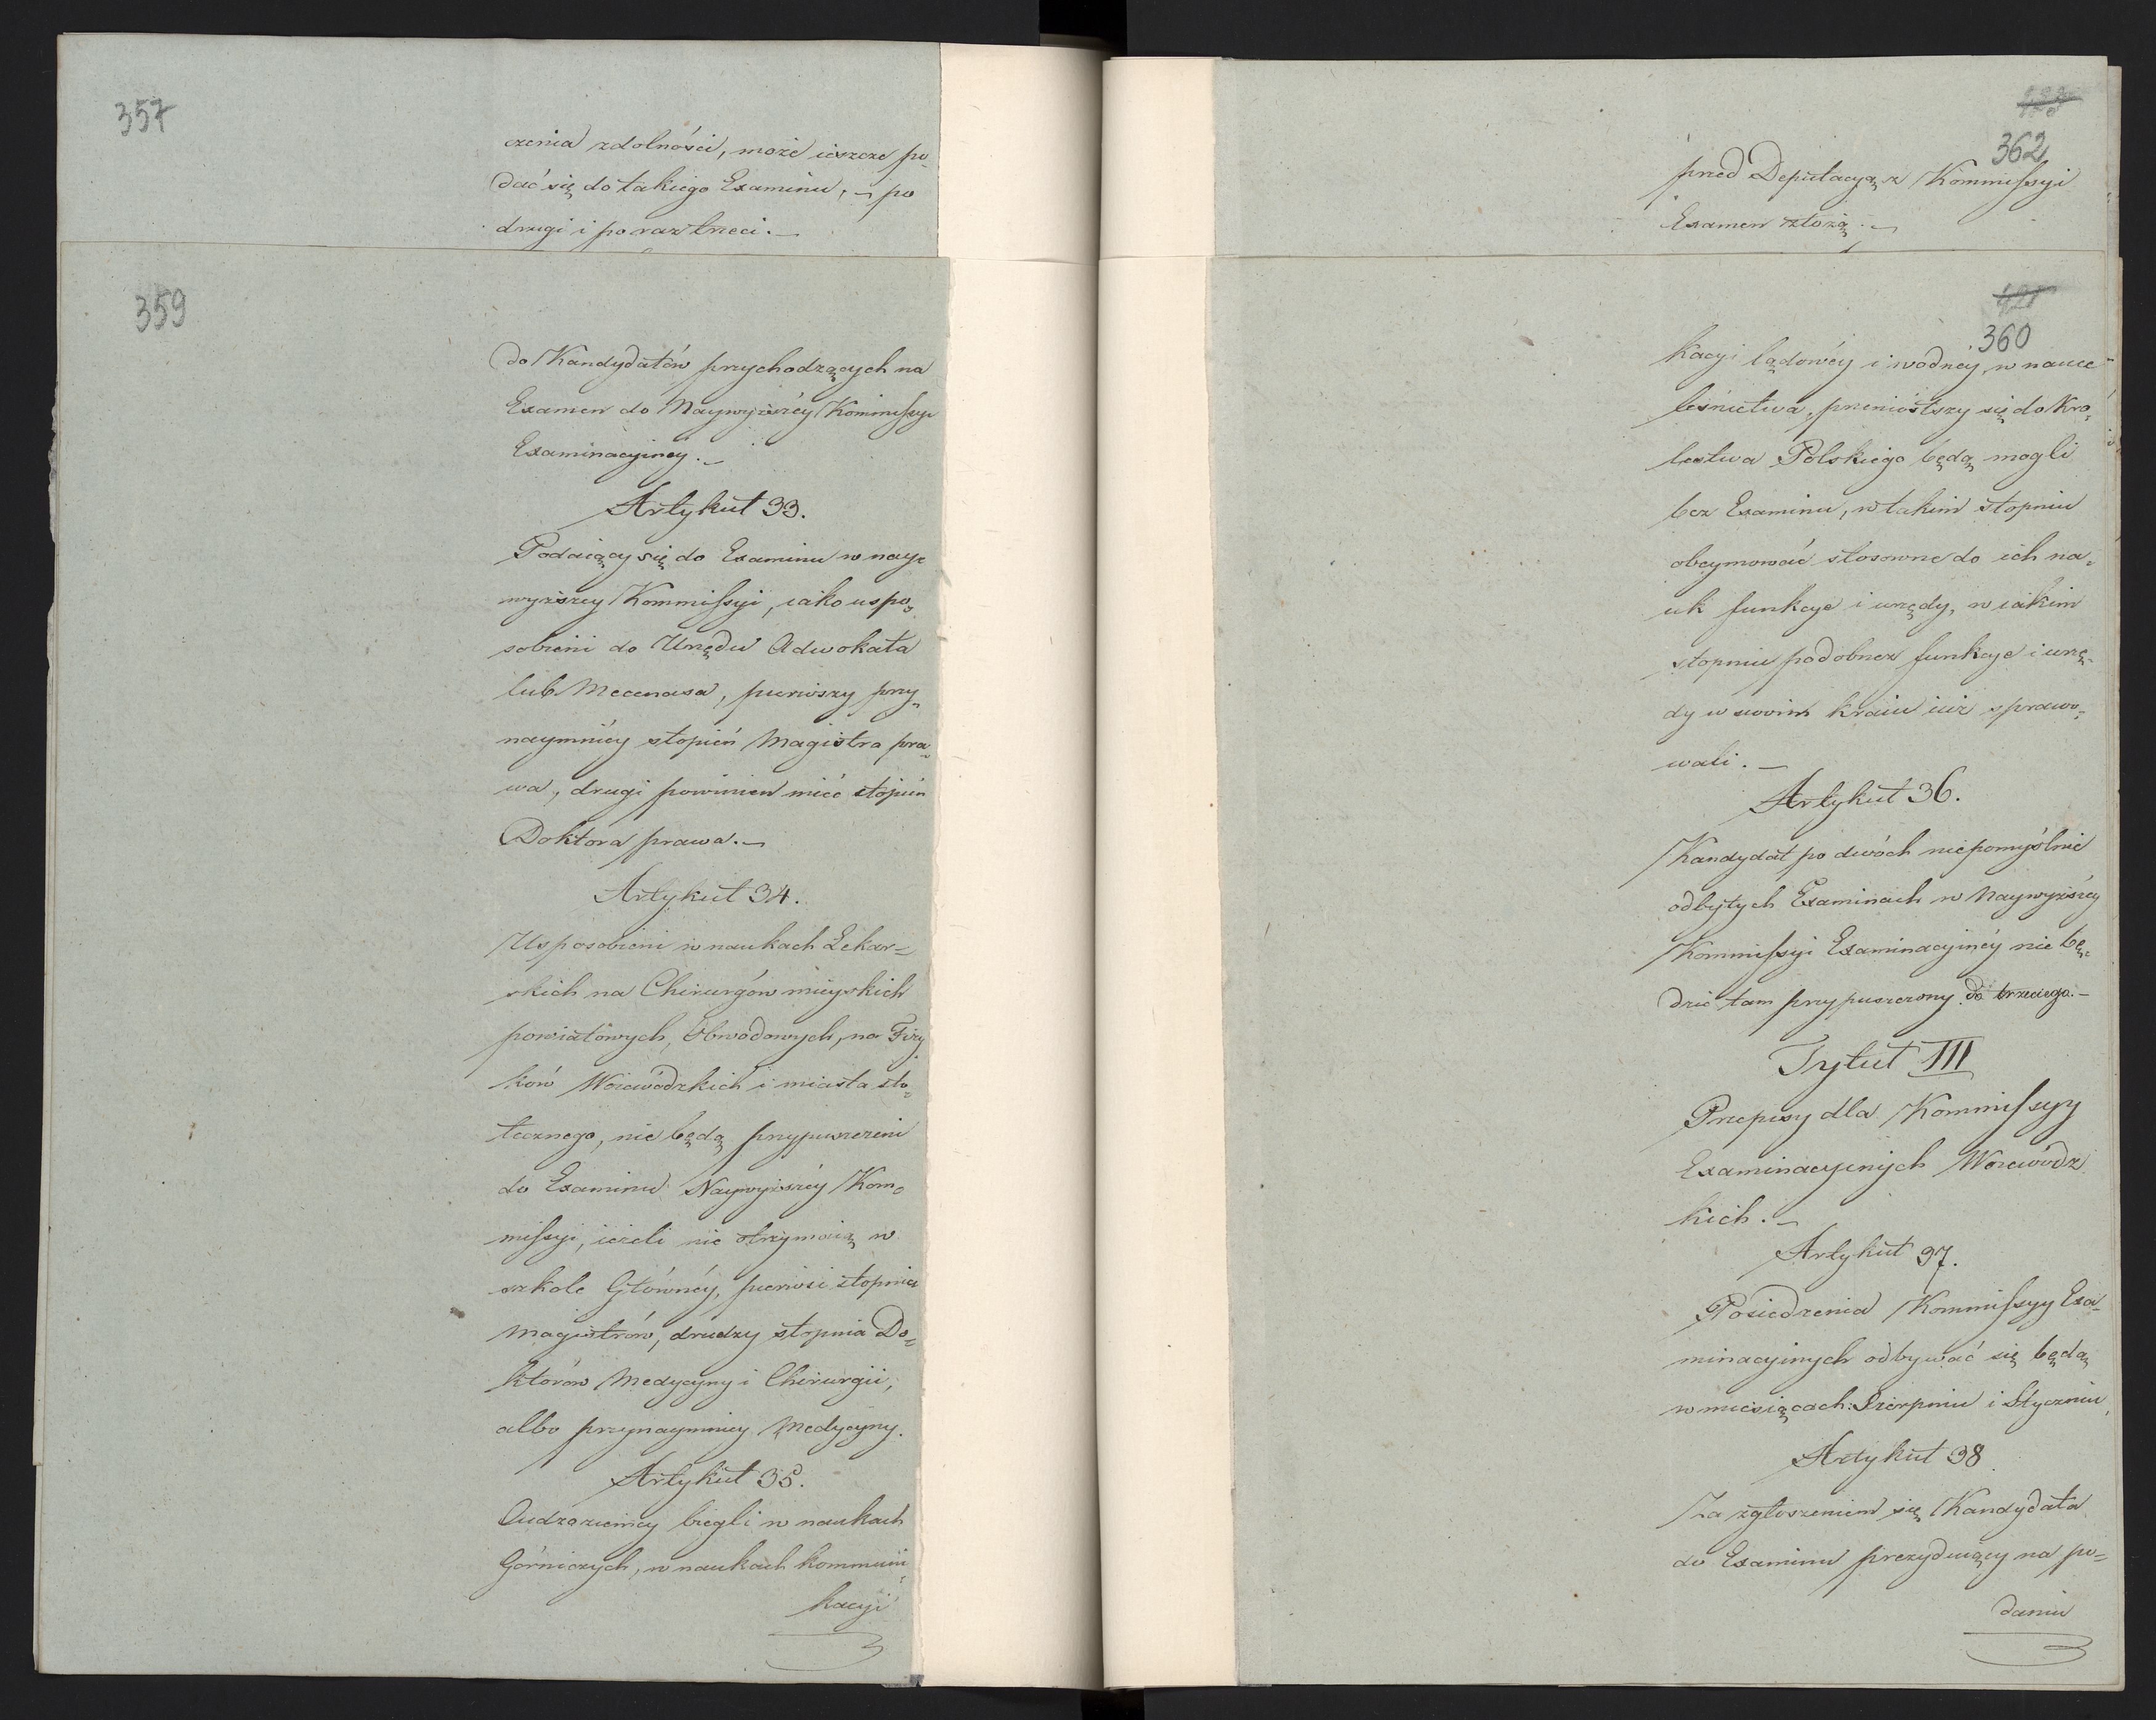 357
czenia zdolności, może ieszcze po-
dać się do takiego Examinu, – po
drugi i po raz trzeci. –
359
do Kandydatów przychodzących na
Examen do Naywyższéy Kommissyi
Examinacyinéy. –
Artykuł 33.
Podaiący się do Examinu w nay-
wyższey Kommissyi, iako uspo-
sobieni do Urzędu Adwokata
lub Mecenasa, pierwszy przy-
naymniéy stopień Magistra pra-
wa, drugi powinien mieć stopień
Doktora prawa. –
Artykuł 34.
Usposobieni w naukach Lekar-
skich na Chirurgów mieyskich
powiatowych, Obwodowych, na Fizy
ków Woiewódzkich i miasta sto-
łecznego, nie będą przypuszczeni
do Examinu Naywyższéy Kom-
missyi, ieżeli nie otrzymaią w
szkole Główney, pierwsi stopnia
Magistrów, drudzy stopnia Do-
ktorów Medycyny i Chirurgii,
albo przynaymniey Medycyny.
Artykuł 35.
Cudzoziemcy biegli w naukach
Górniczych, w naukach kommuni-
kacyi
362
przed Deputacyą z Kommissyi
Examen złożą. –
360
kacyi lądowéy i wodnéy, w nauce
leśnictwa, przeniosłszy się do Kro-
lestwa Polskiego będą mogli
bez Examinu, w takim stopniu
obeymować stosowne do ich na-
uk funkcye i urzędy, w iakim
stopniu podobnez funkcye i urzę-
dy w swoim kraiu iuż sprawo-
wali. –
Artykuł 36.
Kandydat po dwóch niepomyślnie
odbytych Examinach w Naywyższéy
Kommissyi Examinacyinéy nie bę-
dzie tam przypuszczony do trzeciego. –
Tytuł III
Przepisy dla Kommissyy
Examinacyinych Woiewódz
kich. –
Artykuł 37.
Posiedzenia Kommissyy Exa-
minacyinych odbywać się będą
w miesiącach: Sierpniu i Styczniu,
Artykuł 38
Za zgłoszeniem się Kandydata
do Examinu prezyduiący na po-
daniu